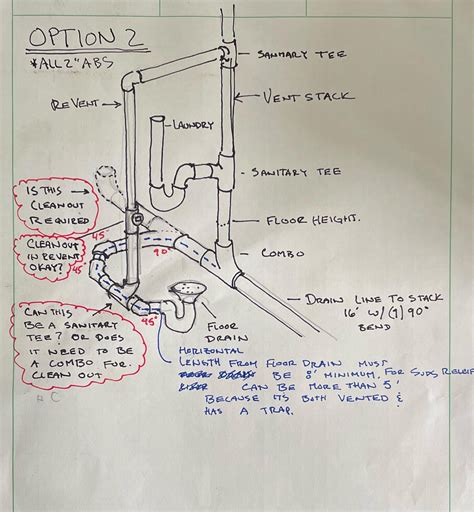 OPTION 2
*ALL 2" ABS
SANITARY TEE
REVENT
VENT STACK
LAUNDRY
SANITARY TEE
IS THIS
CLEANOUT
REQUIRED
FLOOR HEIGHT.
CLEANOUT
IN REVENT
OKAY?
45°
90°
COMBO
DRAIN LINE TO STACK
16' W/(1) 90°
BEND
CAN THIS
BE A SANITARY
TEE? OR DOES
IT NEED TO BE
A COMBO FOR
CLEAN OUT
45°
FLOOR
DRAIN
HORIZONTAL
LENGTH FROM FLOOR DRAIN MUST
BE 8' MINIMUM FOR SUDS RELIEF
CAN BE MORE THAN 5'
BECAUSE ITS BOTH VENTED &
HAS A TRAP.